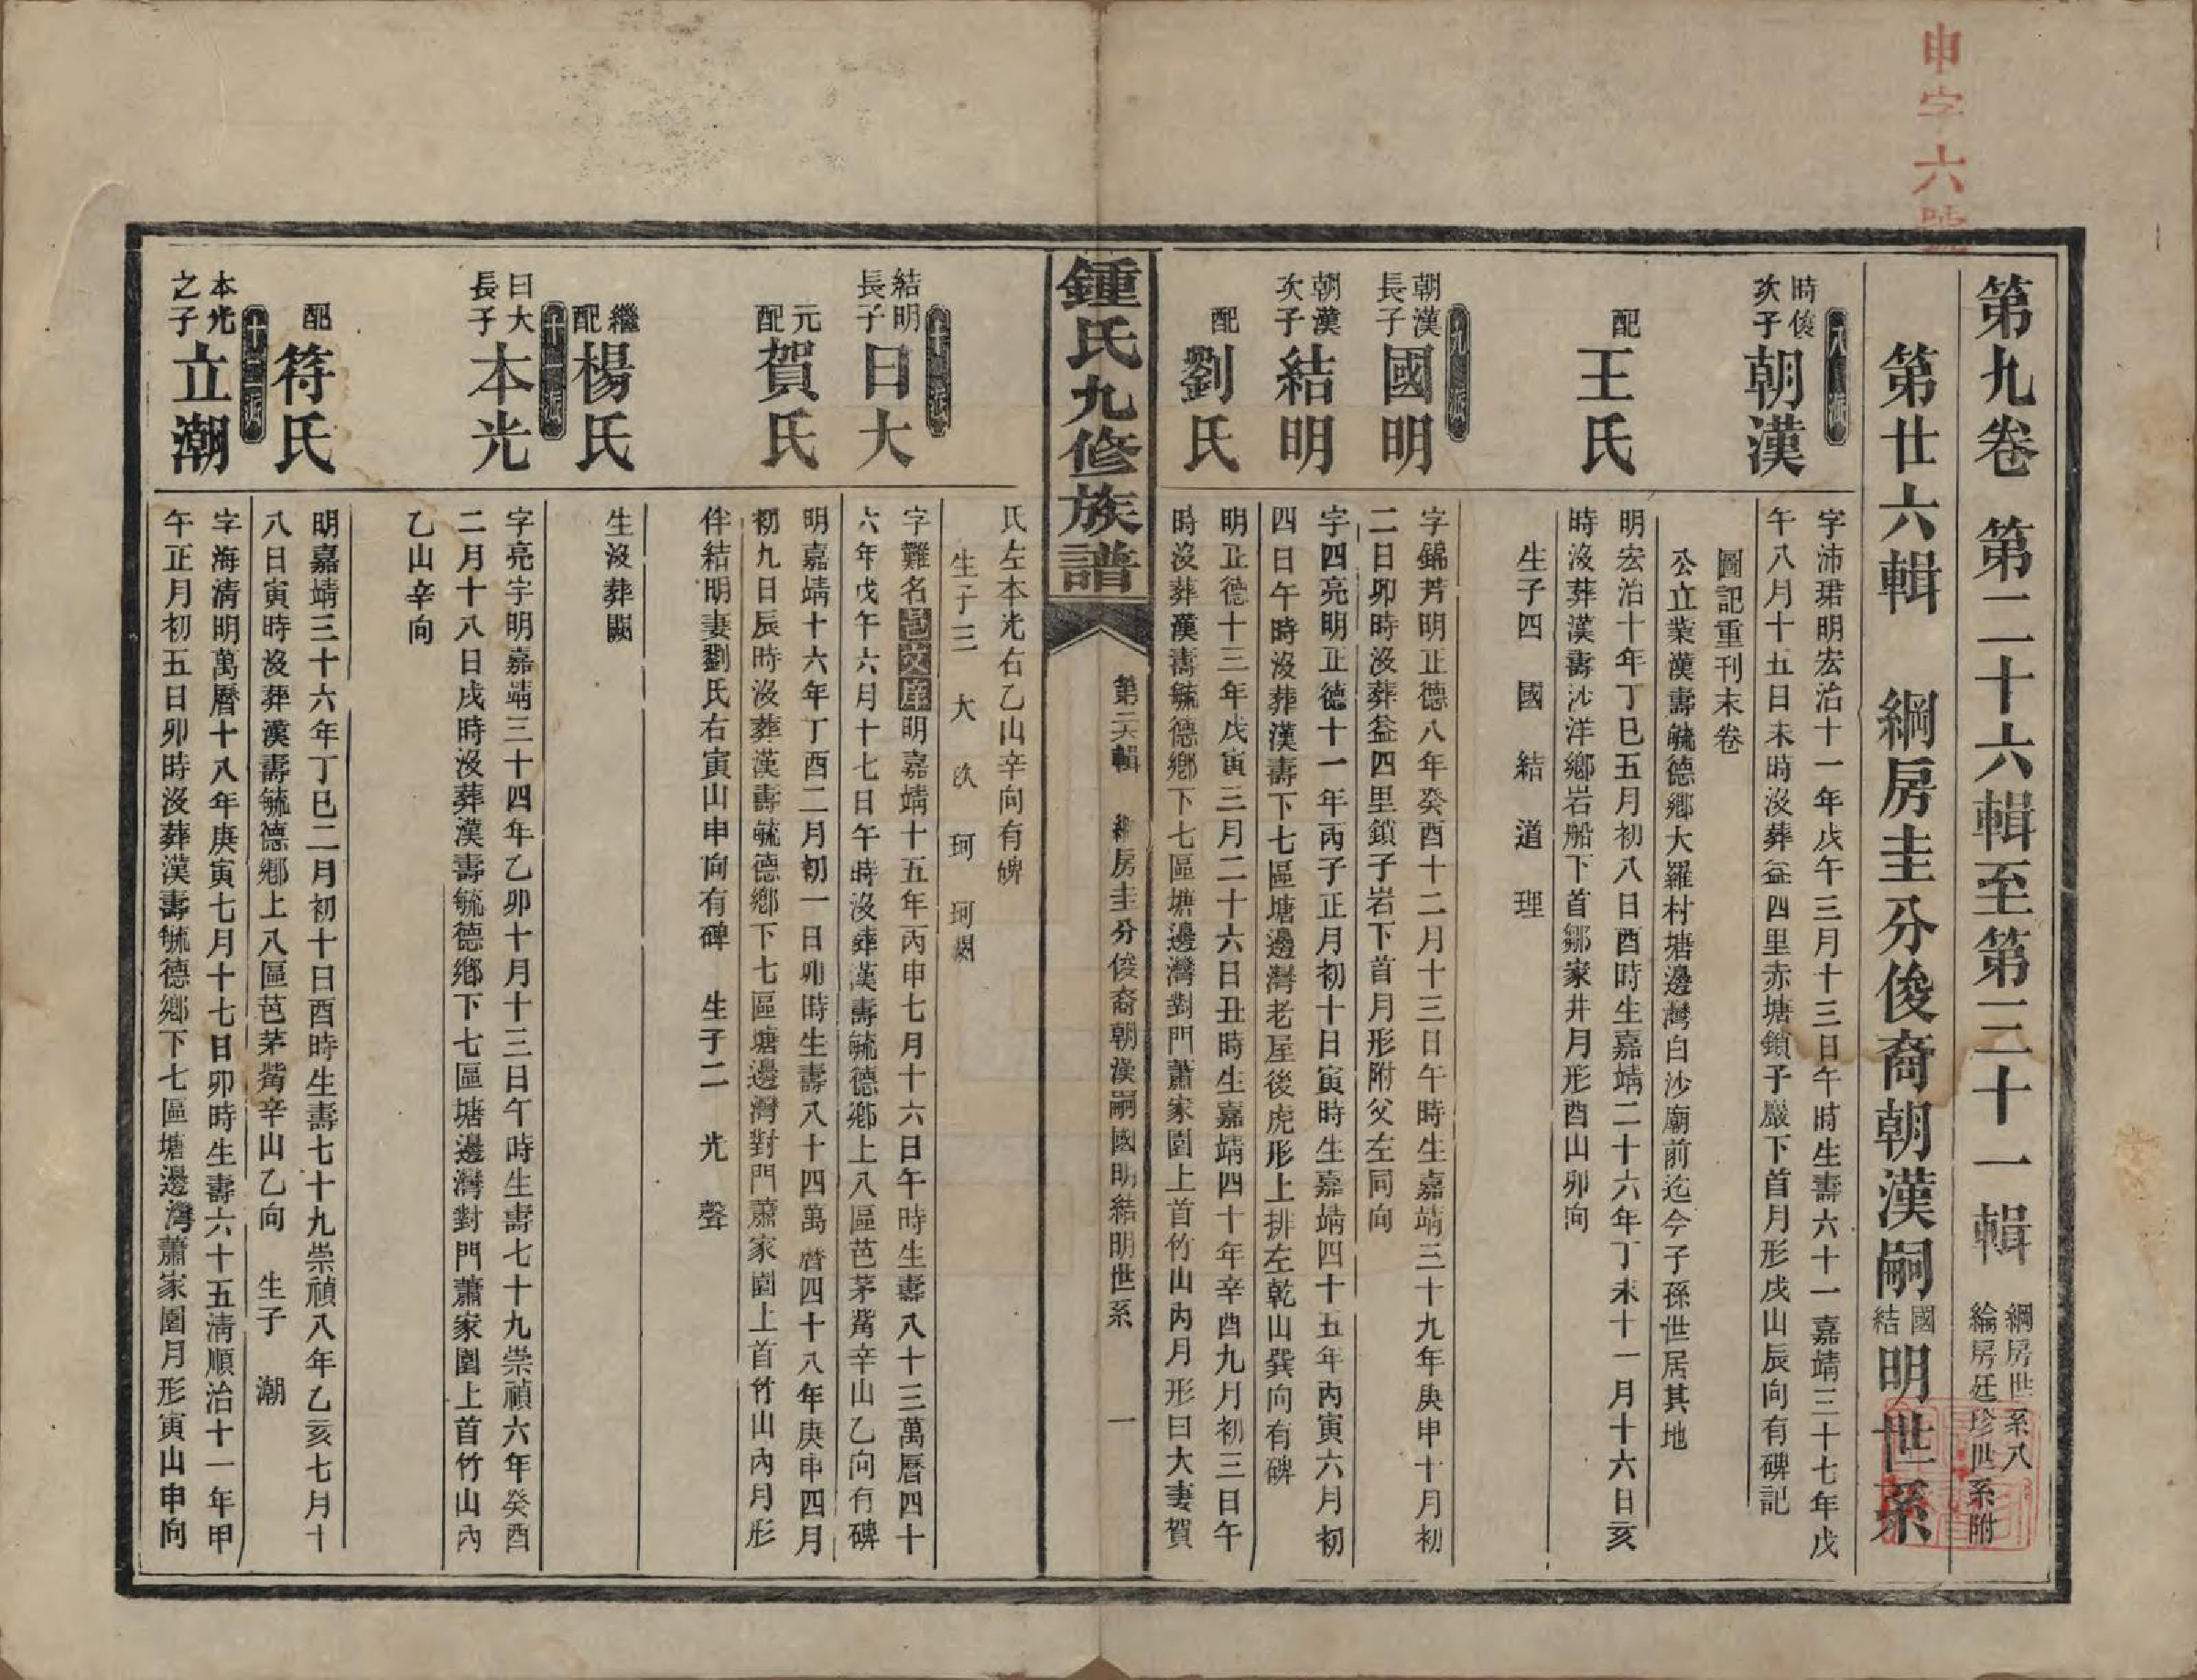 申字六號
第九卷 第二十六輯至第三十一輯 綱房世系八 綸房廷珍世系附
第廿六輯 綱房圭分俊裔朝漢嗣國結明世系
八派
時俊次子 朝漢
字沛珺明宏治十一年戊午三月十三日午時生壽六十一嘉靖三十七年戊
午八月十五日未時沒葬益四里赤塘鎖子巖下首月形戌山辰向有碑記
圖記重刊末卷
公立業漢壽毓德鄉大羅村塘邊灣白沙廟前迄今子孫世居其地
配 王氏
明宏治十年丁巳五月初八日酉時生嘉靖二十六年丁未十一月十六日亥
時沒葬漢壽沙洋鄉岩船下首鄒家井月形酉山卯向
生子四 國 結 道 理
九派
朝漢長子 國明
字錦芳明正德八年癸酉十二月十三日午時生嘉靖三十九年庚申十月初
二日卯時沒葬益四里鎖子岩下首月形附父左同向
朝漢次子 結明
字四亮明正德十一年丙子正月初十日寅時生嘉靖四十五年丙寅六月初
四日午時沒葬漢壽下七區塘邊灣老屋後虎形上排左乾山巽向有碑
配 劉氏
明正德十三年戊寅三月二十六日丑時生嘉靖四十年辛酉九月初三日午
時沒葬漢壽毓德鄉下七區塘邊灣對門蕭家園上首竹山內月形曰大妻賀
鍾氏九修族譜
第二六輯 綱房圭分俊裔朝漢嗣國明結明世系 一
氏左本光右乙山辛向有碑
生子三 大 玖 珂 珂闕
十派
結明長子 曰大
字難名邑庠明嘉靖十五年丙申七月十六日午時生壽八十三萬曆四十
六年戊午六月十七日午時沒葬漢壽毓德鄉上八區芭茅嘴辛山乙向有碑
元配 賀氏
明嘉靖十六年丁酉二月初一日卯時生壽八十四萬曆四十八年庚申四月
初九日辰時沒葬漢壽毓德鄉下七區塘邊灣對門蕭家園上首竹山內月形
伴結明妻劉氏右寅山申向有碑 生子二 光 聲
繼配 楊氏
生沒葬闕
十一派
曰大長子 本光
字亮宇明嘉靖三十四年乙卯十月十三日午時生壽七十九崇禎六年癸酉
二月十八日戌時沒葬漢壽毓德鄉下七區塘邊灣對門蕭家園上首竹山內
乙山辛向
配 符氏
明嘉靖三十六年丁巳二月初十日酉時生壽七十九崇禎八年乙亥七月十
八日寅時沒葬漢壽毓德鄉上八區芭茅嘴辛山乙向 生子 潮
十二派
本光之子 立潮
字海清明萬曆十八年庚寅七月十七日卯時生壽六十五清順治十一年甲
午正月初五日卯時沒葬漢壽毓德鄉下七區塘邊灣蕭家園月形寅山申向